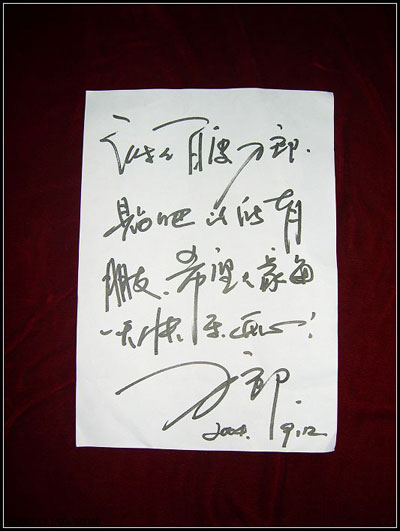 谢谢百度刀郎.
贴吧的所有
朋友.希望大家每
一天快乐.开心!
刀郎
2004. 9.12